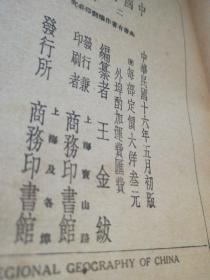 中國
二
此書有著作權翻印必究
中華民國十六年五月初版
每部定價大洋叁元
外埠酌加運費匯費
編纂者 王金紱
發行兼印刷者 上海寶山路 商務印書館
發行所 上海及各埠 商務印書館
REGIONAL GEOGRAPHY OF CHINA